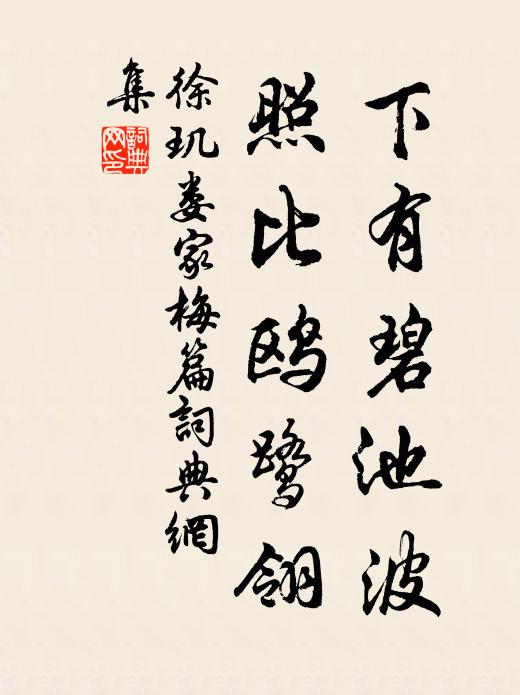 下有碧池波
照比鸥鹭翎
徐玑娄家梅篇詞典網
集
詞典
网印